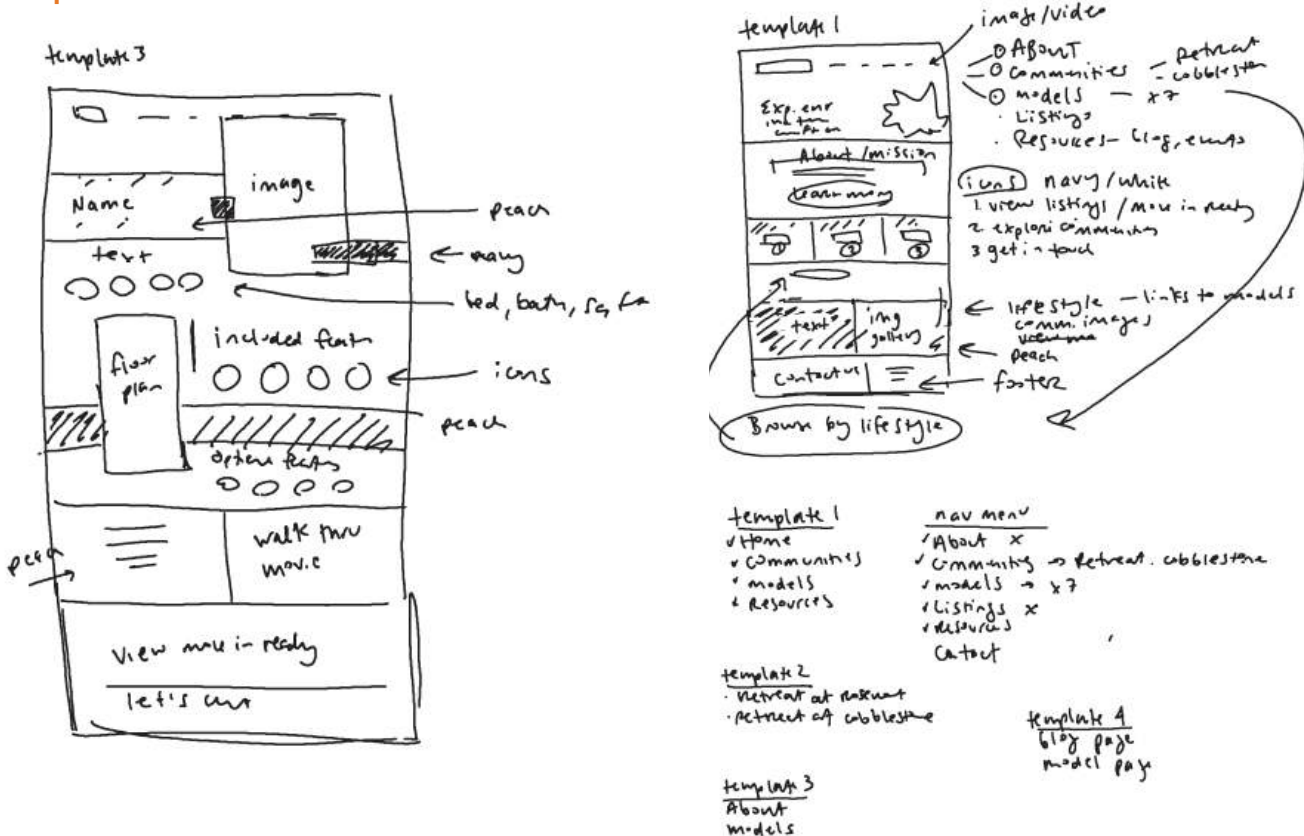 template 3
image
Name
peach
text
navy
bed, bath, sq
floor
plan
included
icons
peach
peach
walk thru
movie
view move in ready
let's
template 1
image/video
ABOUT
communities - Retreat
- cobblestone
models - x7
Listings
Resources - blog, events
About/mission
learn more
icons navy/white
1. view listings / move in ready
2 explore communities
3 get in touch
1
2
3
text
img
gallery
lifestyle - links to models
comm. images
peach
contact us
footer
Browse by lifestyle
template 1
✓ Home
✓ communities
✓ models
✓ Resources
nav menu
✓ About x
✓ → Retreat. cobblestone
✓ models → x7
✓ Listings x
✓ Resources
template 2
· Retreat at
· Retreat at cobblestone
template 4
blog page
model page
template 3
About
models